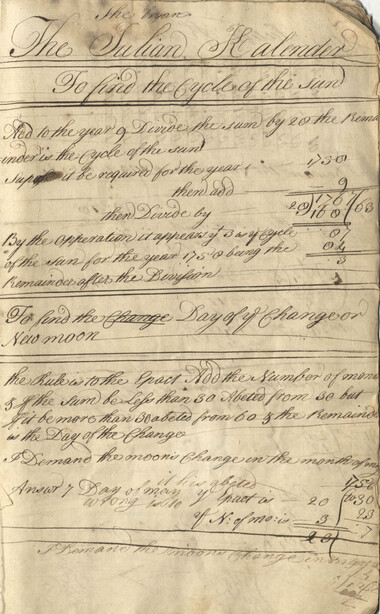 The Julian Kalender
To find the Cycle of the Sun
Add to the year 9 Divide the Sum by 28 the Rema
inder is the Cycle of the Sun
Supose it be required for the year 1758
then add 9
then Divide by 28)1767(63
168
By the opperation it appears yt 3 is ye Cycle 87
of the Sun for the year 1758 being the 84
Remainder after the Division 3
To find the Change Day of ye Change or
New moon
the Rule is to the Epact Add the Number of mon
& if the Sum be Less than 30 Abated from 30 but
if it be more than 30 abeted from 60 & the Remaind
is the Day of the Change
I Demand the moons Change in the month of m
1758
Answr 7 Day of may ye Epact is 20 30
ye N. of mo: is 3 23
23 7
I Demand the moons Change in